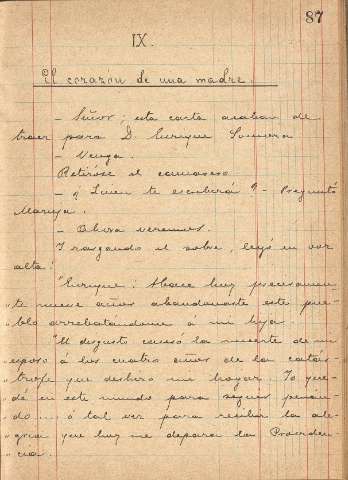 87
IX.
El corazón de una madre.
- Señor; esta carta acaban de
traer para D. Enrique
- Venga.
Retiróse el camarero
- ¿ Quien te escribirá? - Preguntó
Maruja.
- Ahora veremos.
Y rasgando el sobre, leyó en voz
alta:
"Enrique: Hace hoy precisamen-
"te nueve años abandonaste este pue-
"blo arrebatandome á mi hija.
"El disgusto causo la muerte de mi
"esposo á los cuatro años de la catás-
"trofe que deshizo mi hogar. Yo que-
"dé en este mundo para seguir penan-
"do... ó tal vez para recibir la ale-
"gria que hoy me depara la Providen-
"cia.